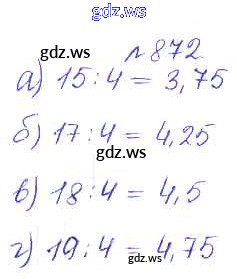 gdz.ws
gdz.ws
№ 872
а) 15 : 4 = 3,75
б) 17 : 4 = 4,25
gdz.ws
в) 18 : 4 = 4,5
г) 19 : 4 = 4,75
gdz.ws